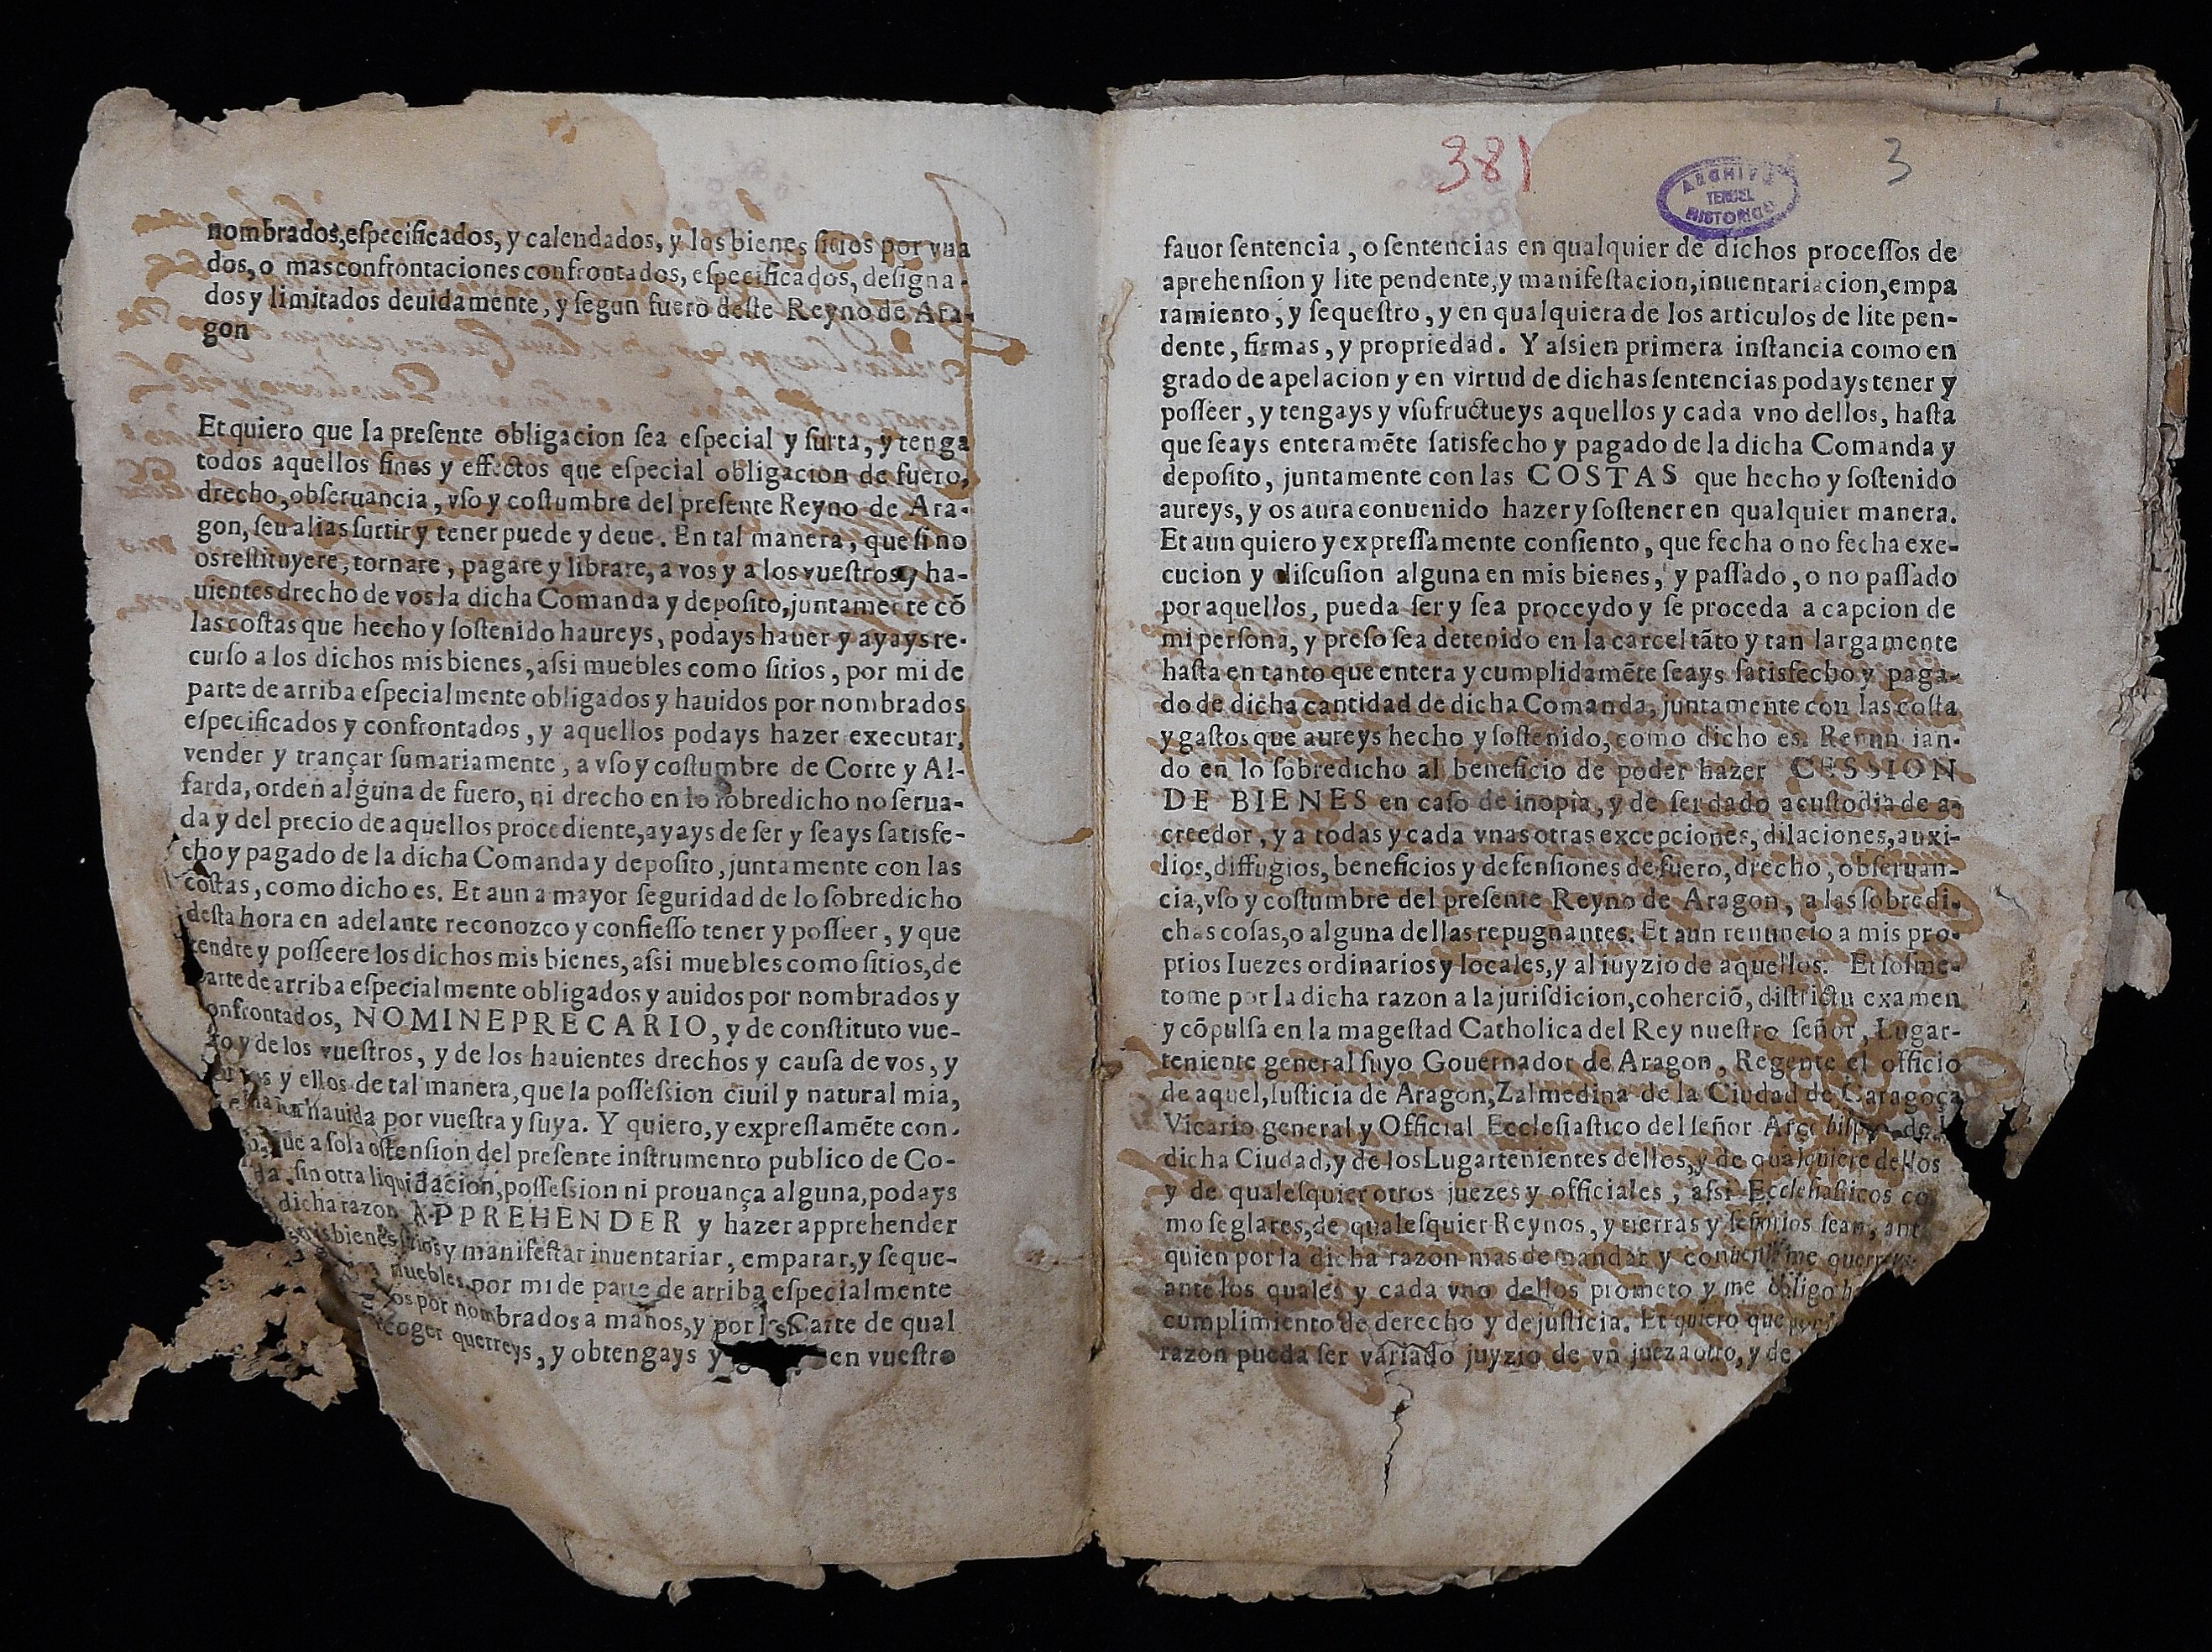 nombrados, eſpecificados, y calendados, y los bienes ſitios por vna
dos, o mas confrontaciones confrontados, eſpecificados, deſigna-
dos y limitados deuidamente, y ſegun fuero deſte Reyno de Ara-
gon
Et quiero que la preſente obligacion ſea eſpecial y ſurta, y tenga
todos aquellos fines y effectos que eſpecial obligacion de fuero,
drecho, obſeruancia, vſo y coſtumbre del preſente Reyno de Ara-
gon, ſeu alias ſurtir y tener puede y deue. En tal manera, que ſi no
os reſtituyere, tornare, pagare y librare, a vos y a los vueſtros y ha-
uientes drecho de vos la dicha Comanda y depoſito, juntamente cõ
las coſtas que hecho y ſoſtenido haureys, podays hauer y ayays re-
curſo a los dichos mis bienes, aſsi muebles como ſitios, por mi de
parte de arriba eſpecialmente obligados y hauidos por nombrados
eſpecificados y confrontados, y aquellos podays hazer executar,
vender y trançar ſumariamente, a vſo y coſtumbre de Corte y Al-
farda, orden alguna de fuero, ni drecho en lo ſobredicho no ſerua-
da y del precio de aquellos procediente, ayays de ſer y ſeays ſatisfe-
cho y pagado de la dicha Comanda y depoſito, juntamente con las
coſtas, como dicho es. Et aun a mayor ſeguridad de lo ſobredicho
deſta hora en adelante reconozco y confieſſo tener y poſſeer, y que
tendre y poſſeere los dichos mis bienes, aſsi muebles como ſitios, de
parte de arriba eſpecialmente obligados y auidos por nombrados y
onfrontados, NOMINE PRECARIO, y de conſtituto vue-
ro y de los vueſtros, y de los hauientes drechos y cauſa de vos, y
y ellos de tal manera, que la poſſeſsion ciuil y natural mia,
hauida por vueſtra y ſuya. Y quiero, y expreſſamẽte con-
que a ſola oſtenſion del preſente inſtrumento publico de Co-
da, ſin otra liquidacion, poſſeſsion ni prouança alguna, podays
dicha razon APPREHENDER y hazer apprehender
bienes ſitios y manifeſtar inuentariar, emparar, y ſeque-
muebles, por mi de parte de arriba eſpecialmente
os por nombrados a manos, y por la Carte de qual
coger querreys, y obtengays y en vueſtro
381
3
ARCHIVO
TERUEL
HISTORICO
fauor ſentencia, o ſentencias en qualquier de dichos proceſſos de
aprehenſion y lite pendente, y manifeſtacion, inuentariacion, empa
ramiento, y ſequeſtro, y en qualquiera de los articulos de lite pen-
dente, firmas, y propriedad. Y aſsi en primera inſtancia como en
grado de apelacion y en virtud de dichas ſentencias podays tener y
poſſeer, y tengays y vſufructueys aquellos y cada vno dellos, haſta
que ſeays enteramẽte ſatisfecho y pagado de la dicha Comanda y
depoſito, juntamente con las COSTAS que hecho y ſoſtenido
aureys, y os aura conuenido hazer y ſoſtener en qualquier manera.
Et aun quiero y expreſſamente conſiento, que fecha o no fecha exe-
cucion y diſcuſion alguna en mis bienes, y paſſado, o no paſſado
por aquellos, pueda ſer y ſea proceydo y ſe proceda a capcion de
mi perſona, y preſo ſea detenido en la carcel tãto y tan largamente
haſta en tanto que entera y cumplidamẽte ſeays ſatisfecho y paga-
do de dicha cantidad de dicha Comanda, juntamente con las coſta
y gaſtos que aureys hecho y ſoſtenido, como dicho es. Renun ian-
do en lo ſobredicho al beneficio de poder hazer CESSION
DE BIENES en caſo de inopia, y de ſer dado a cuſtodia de a-
creedor, y a todas y cada vnas otras excepciones, dilaciones, auxi-
lios, diffugios, beneficios y defenſiones de fuero, drecho, obſeruan-
cia, vſo y coſtumbre del preſente Reyno de Aragon, a las ſobredi-
chas coſas, o alguna dellas repugnantes. Et aun renuncio a mis pro-
prios Iuezes ordinarios y locales, y al iuyzio de aquellos. Et ſoſme-
tome por la dicha razon a la jurisdicion, coherciõ, diſtrictu examen
y cõpulſa en la mageſtad Catholica del Rey nueſtro ſeñor, Lugar-
teniente general ſuyo Gouernador de Aragon, Regente el officio
de aquel, Iuſticia de Aragon, Zalmedina de la Ciudad de Çaragoça
Vicario general y Official Eccleſiaſtico del ſeñor Arçobiſpo de l
dicha Ciudad, y de los Lugartenientes dellos, y de qualquiere dellos
y de qualeſquier otros juezes y officiales, aſsi Eccleſiaſticos co
mo ſeglares, de qualeſquier Reynos, y tierras y ſeñorios ſean, ant
quien por la dicha razon mas demandar y conuenir me querreys
ante los quales y cada vno dellos prometo y me obligo h
cumplimiento de derecho y de juſticia. Et quiero que por
razon pueda ſer variado juyzio de vn juez a otro, y de